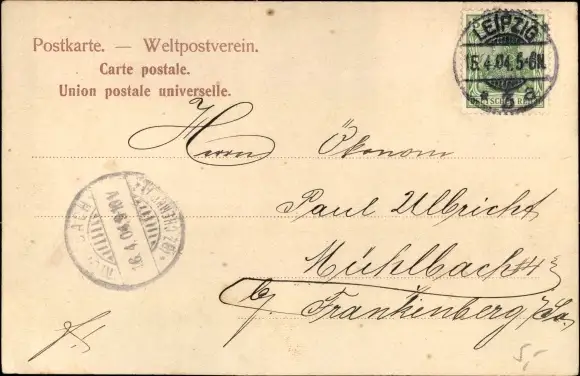 Postkarte. — Weltpostverein.
Carte postale.
Union postale universelle.
LEIPZIG
15.4.04.5-6N.
* 6 a
DEUTSCHES REICH
Herrn Ökonom
Paul Ulbricht
Mühlbach
b/ Frankenberg i/Sa.
16.4.04
5,-